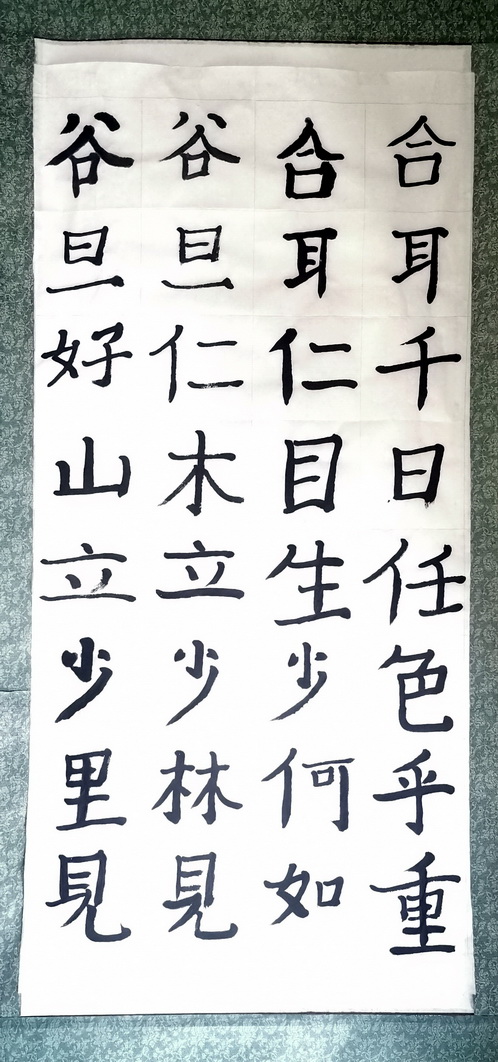 合耳千日任色乎重
合耳仁目生少何如
谷旦仁木立少林見
谷旦好山立少里見